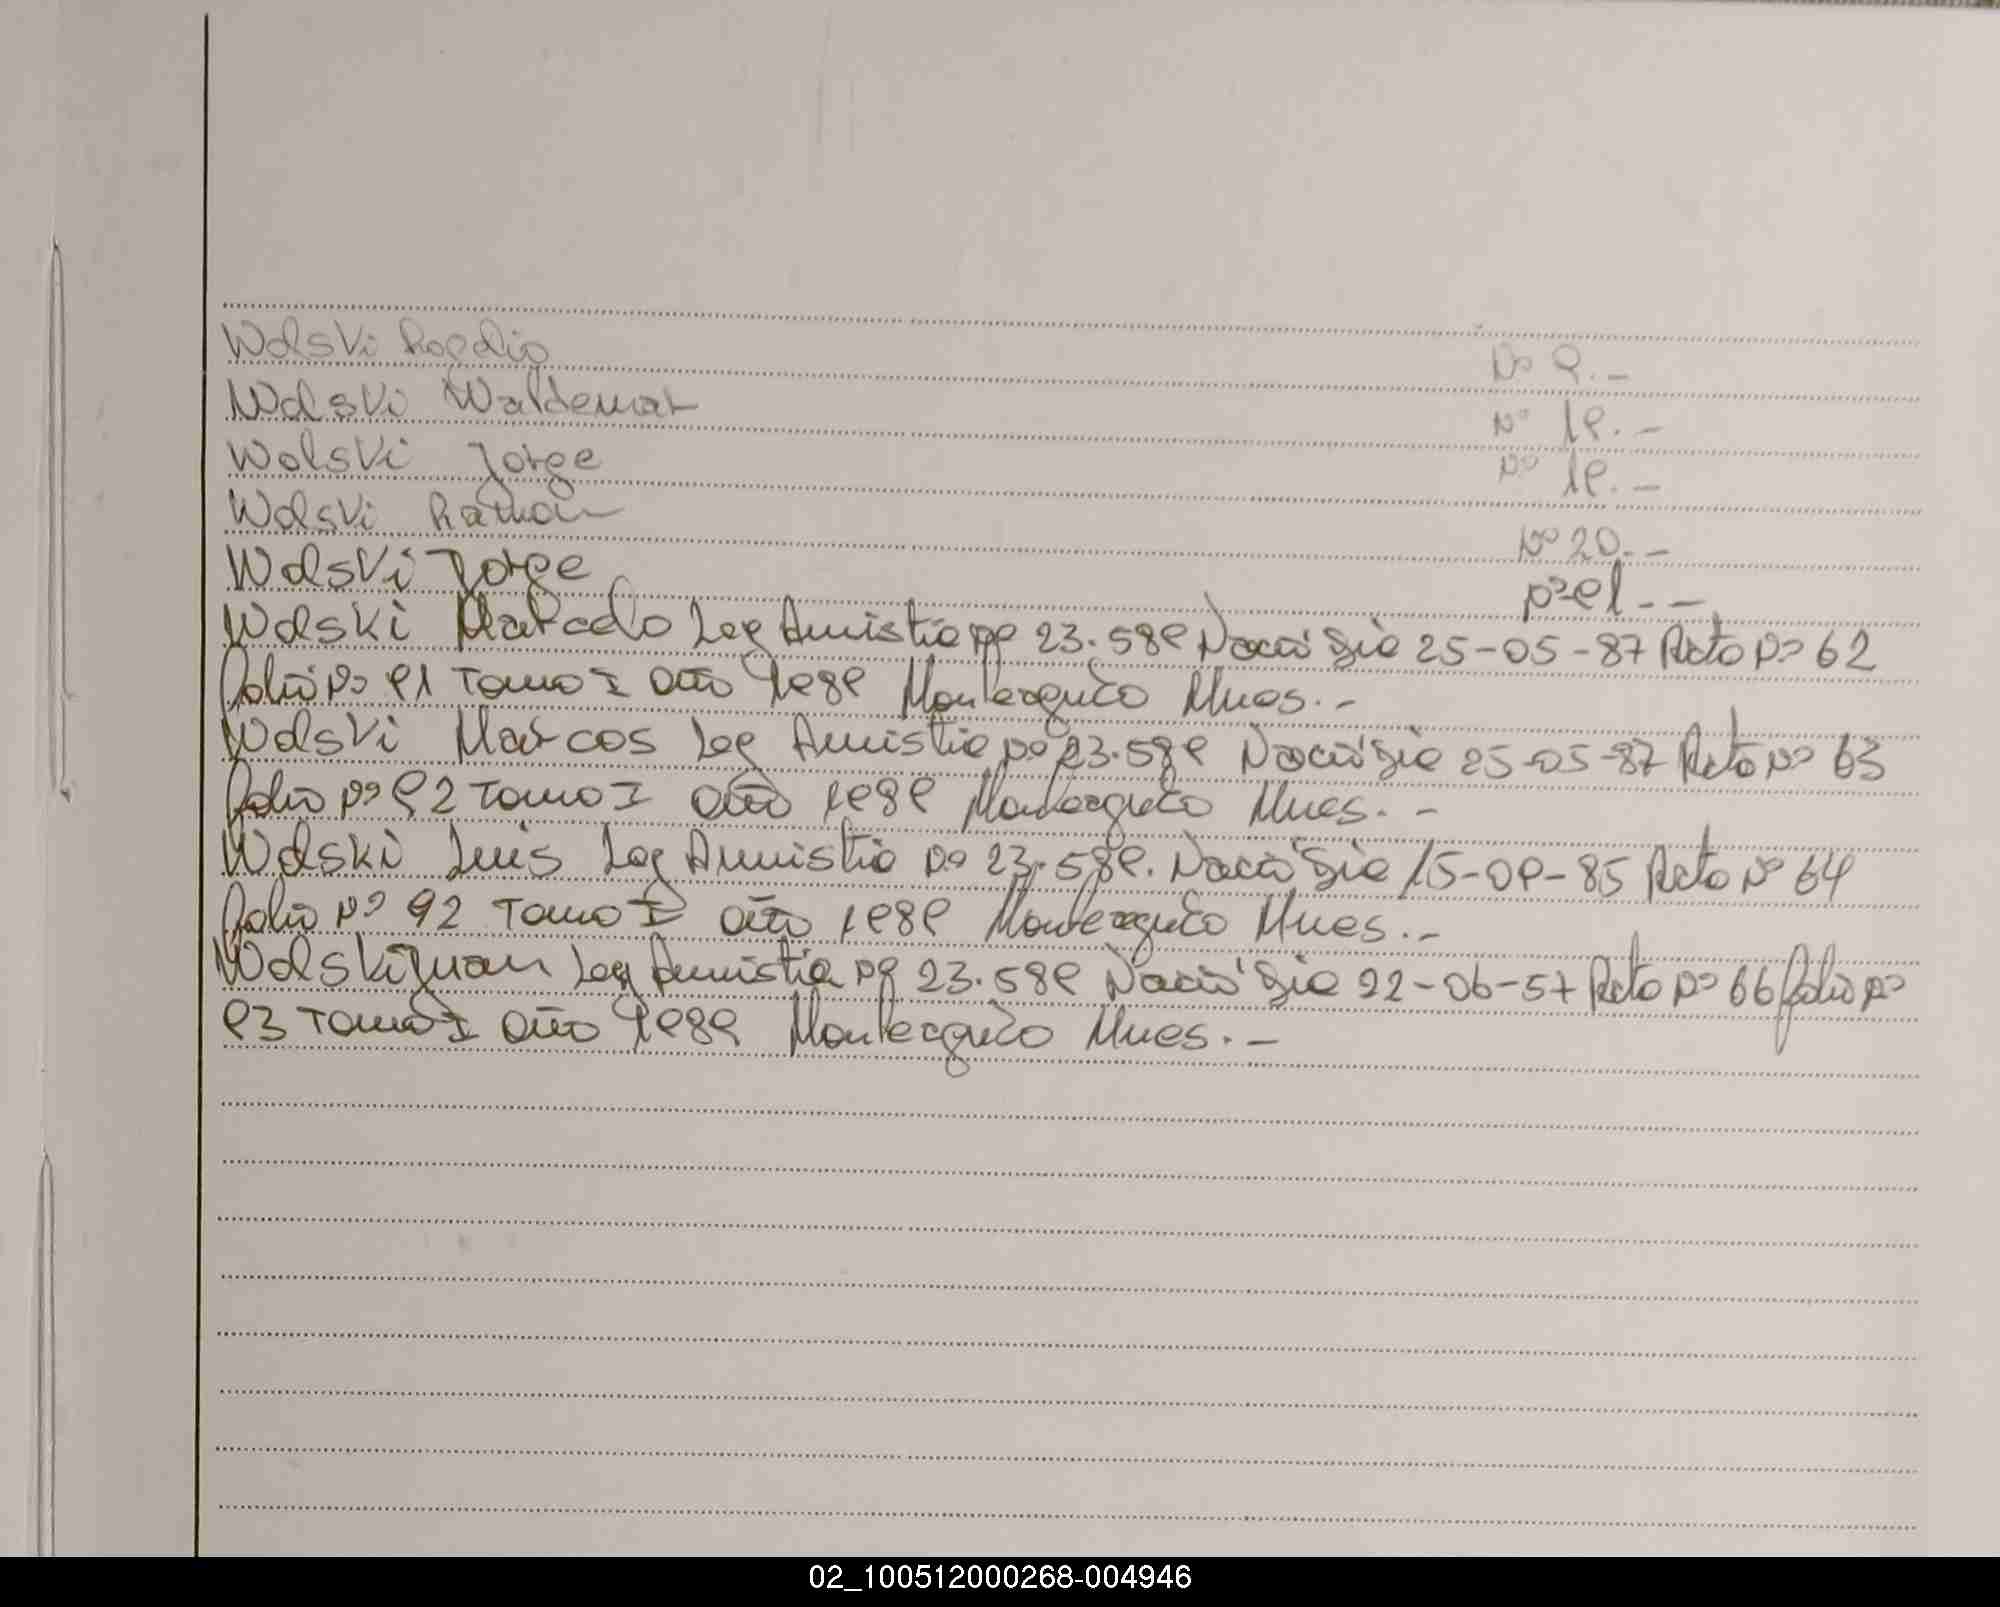 Wolski Rogelio Nº 9.-
Wolski Waldemar Nº 19.-
Wolski Jorge Nº 19.-
Wolski Ramón Nº 20.-
Wolski Jorge Nº 91.--
Wolski Marcelo Ley Amnistia Nº 23.589 Nació Dia 25-05-87 Acta Nº 62
folio Nº 91 Tomo I año 1989 Montecarlo Mnes.-
Wolski Marcos Ley Amnistia Nº 23.589 Nació Dia 25-05-87 Acta Nº 63
folio Nº 92 Tomo I año 1989 Montecarlo Mnes.-
Wolski Luis Ley Amnistia Nº 23.589. Nació Dia 15-09-85 Acta Nº 64
folio Nº 92 Tomo I año 1989 Montecarlo Mnes.-
Wolski Juan Ley Amnistia Nº 23.589 Nació Dia 22-06-57 Acta Nº 66 folio Nº
93 Tomo I año 1989 Montecarlo Mnes.-
02_100512000268-004946